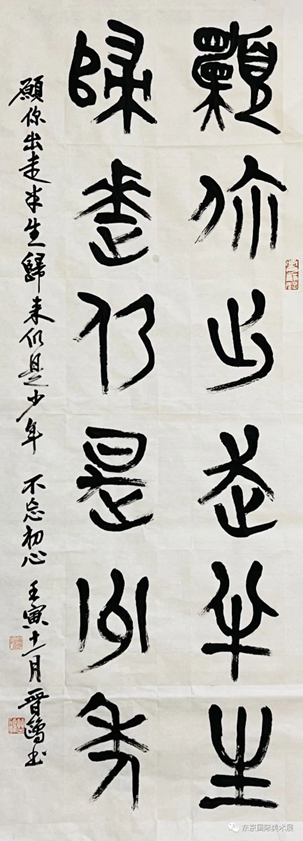 願你出走半生
歸來仍是少年
願你出走半生歸來仍是少年 不忘初心 壬寅十一月 晉鴻書
东京国际美术展